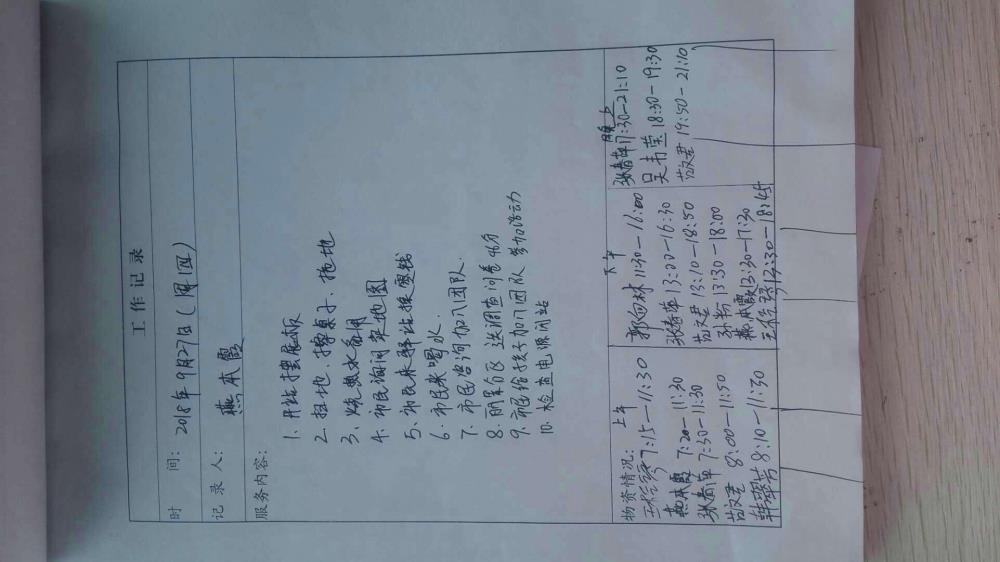 工作记录
时 间: 2018年9月27日(周四)
记 录 人: 燕本霞
服务内容:
1. 开站摆展板
2. 扫地、擦桌子、拖地
3、烧热水备用
4. 市民询问取地图
5、市民来驿站换零钱
6. 市民来喝水.
7. 市民咨询加入团队.
8. 丽景分区送调查问卷
9. 市民给孩子加入团队参加活动
10. 检查电源闭站
物资情况: 上午
7:15—11:30
燕本霞 7:20—11:30
张春苹 7:30—11:30
范文君 8:00—11:50
韩翠芳 8:10—11:30
下午
郭向林 11:30—16:00
张春苹 13:00—16:30
范文君 13:10—18:50
孙芳 13:30—18:00
燕本霞 13:30—17:30
13:30—18:45
晚上
张春苹 17:30—21:10
吴书荣 18:30—19:30
范文君 19:50—21:10